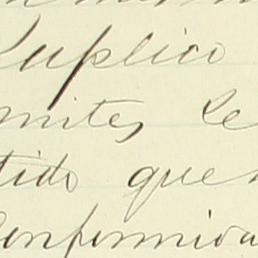 Suplico
mites, le
tido que
Conformida